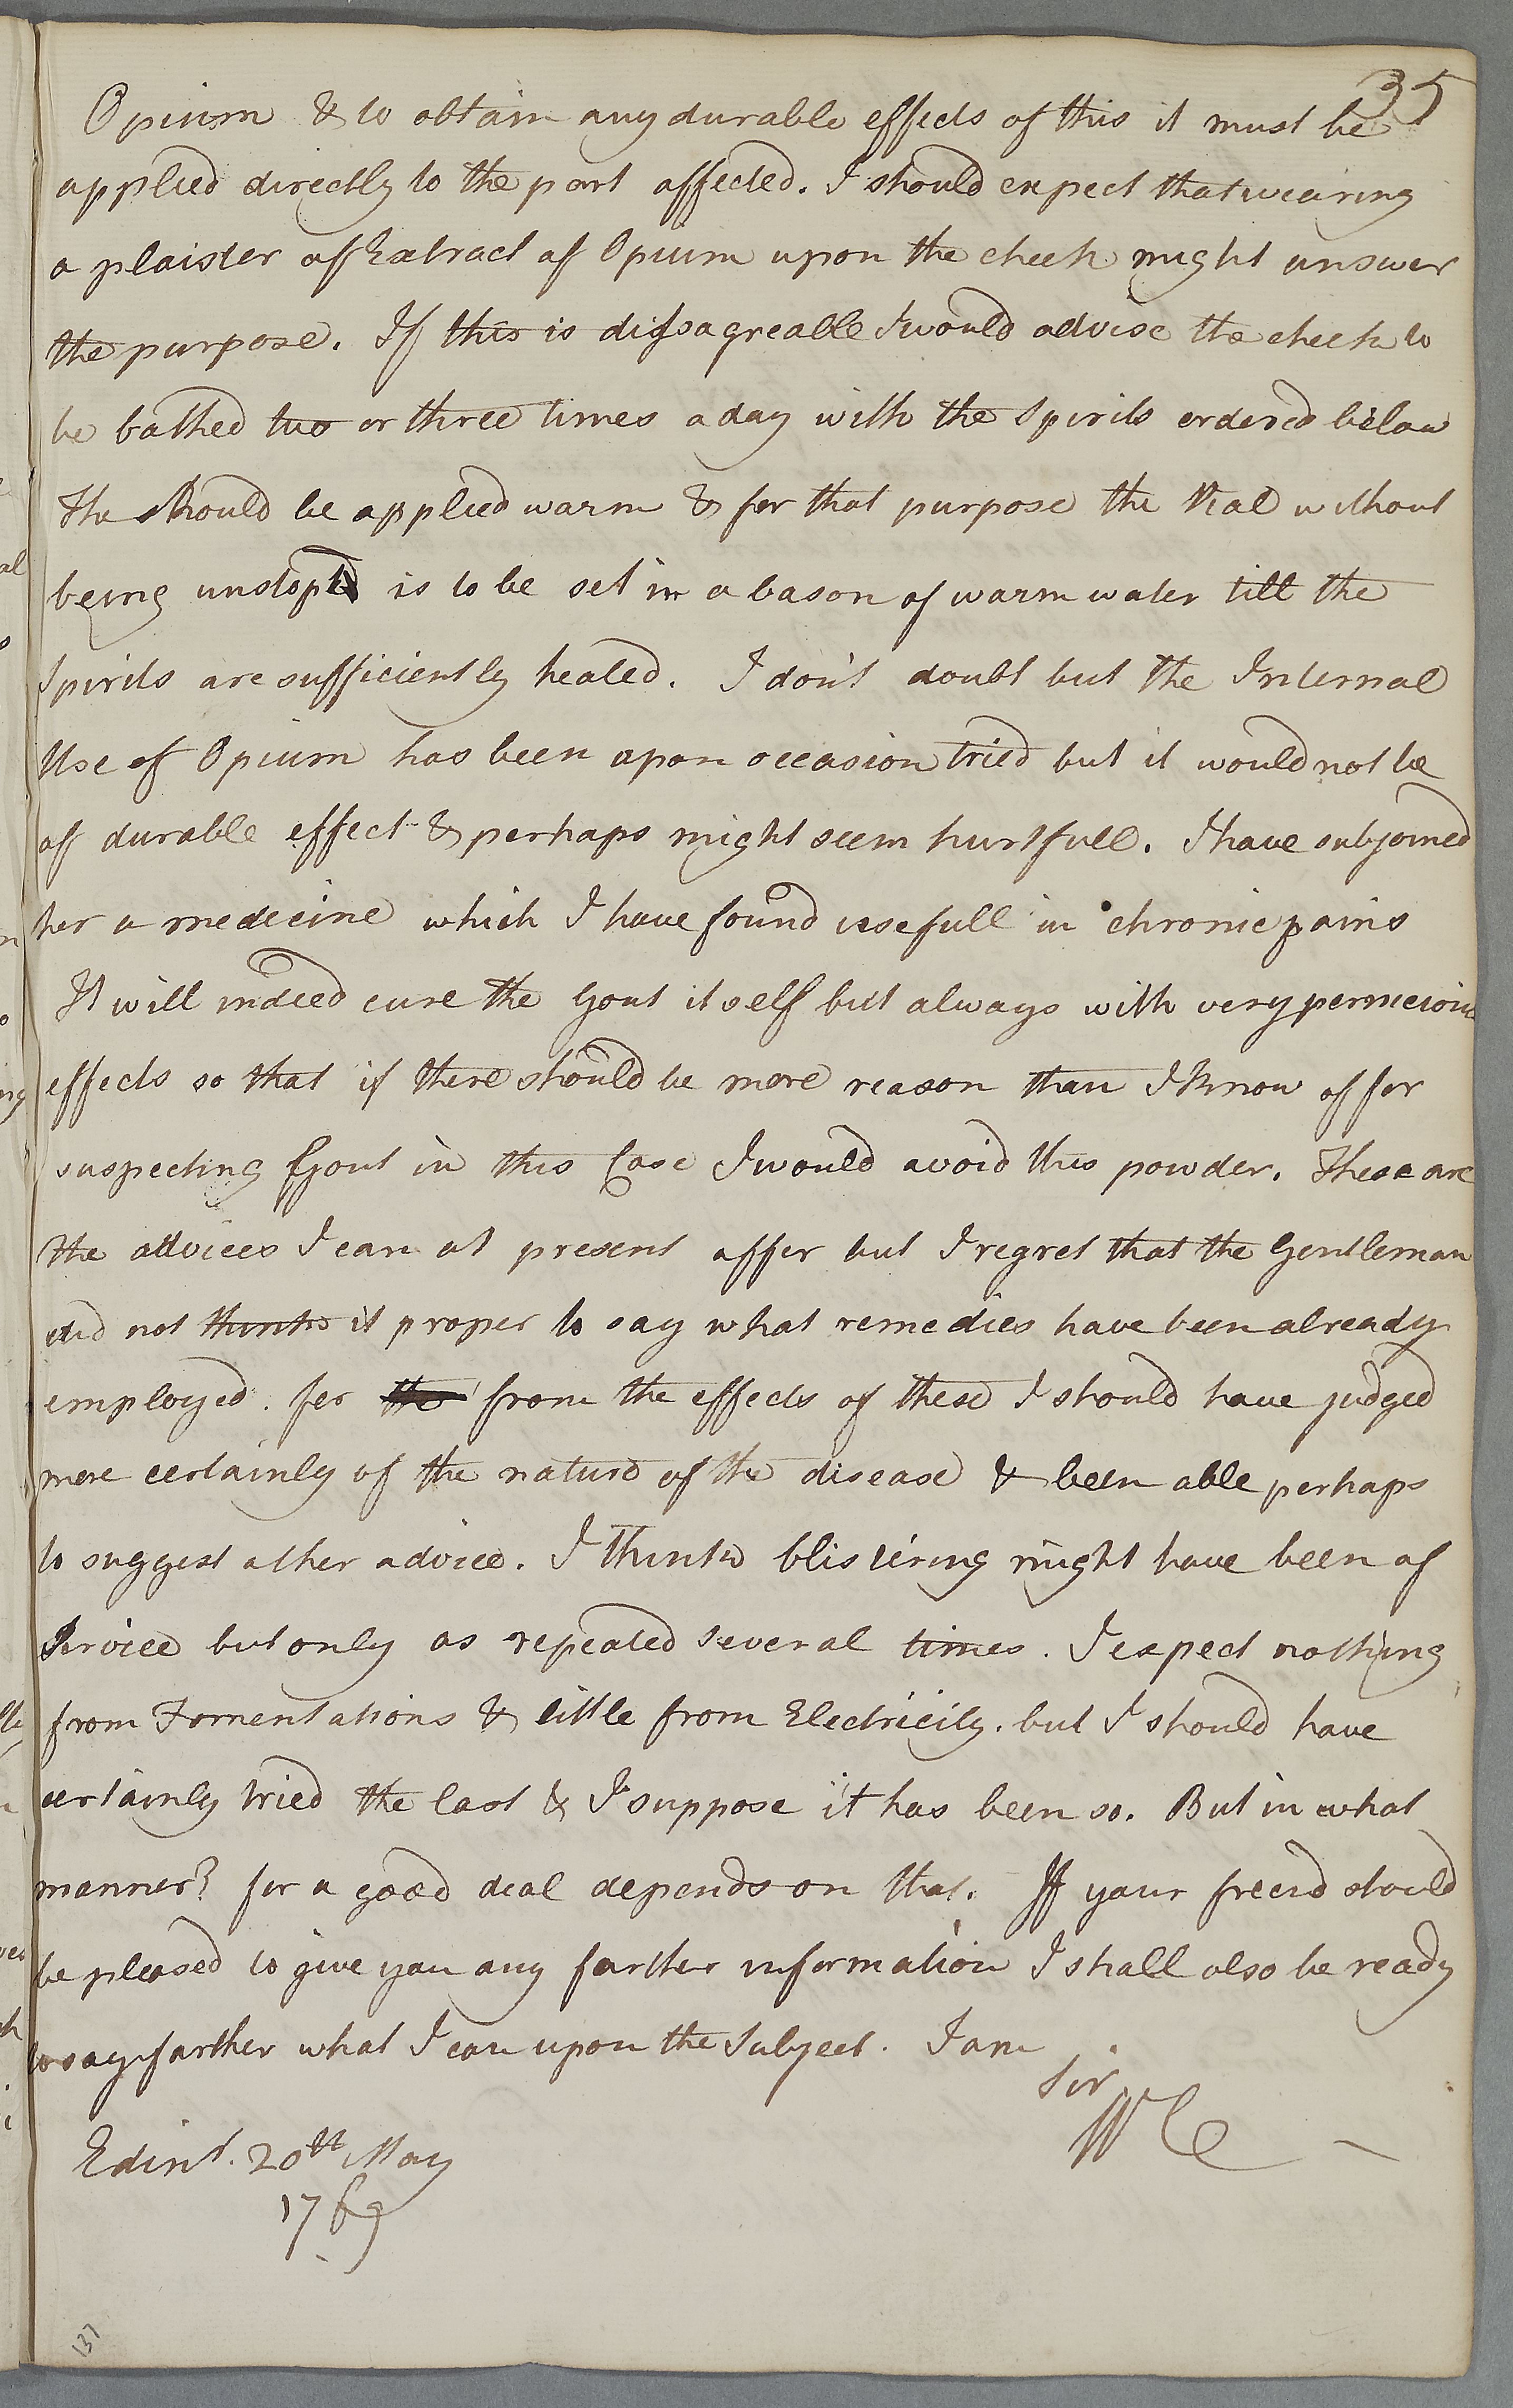 35
Opium & to obtain any durable effects of this it must be
applied directly to the part affected. I should expect that wearing
a plaister of Extract of Opium upon the cheek might answer
the purpose. If this is dissagreable I would advise the cheek to
be bathed two or three times a day with the Spirits ordered below
The should be applied warm & for that purpose the Vial without
being unstopt is to be set in a bason of warm water till the
Spirits are sufficiently heated. I don't doubt but the Internal
Use of Opium has been upon occasion tried but it would not be
of durable effect & perhaps might seem hurtfull. I have subjoined
her a medecine which I have found usefull in chronic pains
It will indeed cure the Gout it self but always with very pernicious
effects so that if there should be more reason than I know of for
suspecting Gout in this Case I would avoid this powder. These are
the advices I can at present offer but I regret that the Gentleman
did not think it proper to say what remedies have been already
employed. for the from the effects of these I should have judged
more certainly of the nature of the disease & been able perhaps
to suggest other advice. I think blistering might have been of
Service but only as repeated several times. I expect nothing
from Fomentations & little from Electricity. but I should have
certainly tried the last & I suppose it has been so. But in what
manner? for a good deal depends on that. If your freind should
be pleased to give you any farther information I shall also be ready
to say farther what I can upon the Subject. I am
Sir
WC
Edinr. 20th May
1769
137